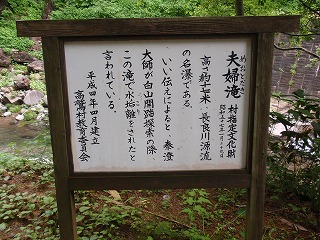 めおとだき
夫婦滝
村指定文化財
高さ約十七米、長良川源流
の名瀑である。
いい伝えによると、泰澄
大師が白山開踏探索の際
この滝で水垢離をされたと
言われている。
平成四年四月建立
高鷲村教育委員会